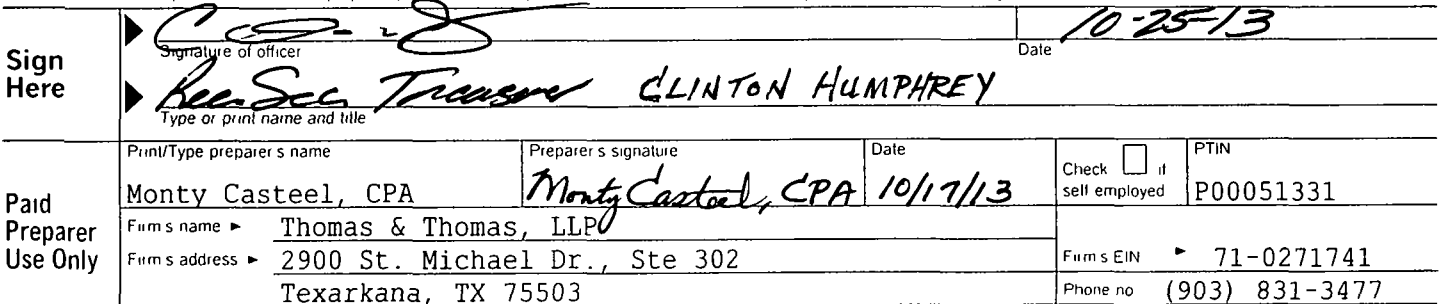 Sign Here
Signature of officer
Date
10-25-13
Rec Sec Treasurer CLINTON HUMPHREY
Type or print name and title
Paid Preparer Use Only
Print/Type preparer s name
Monty Casteel, CPA
Preparer s signature
Monty Casteel, CPA
Date
10/17/13
Check if self employed
PTIN
P00051331
Firm s name ► Thomas & Thomas, LLP
Firm s address ► 2900 St. Michael Dr., Ste 302
Texarkana, TX 75503
Firm s EIN ► 71-0271741
Phone no (903) 831-3477